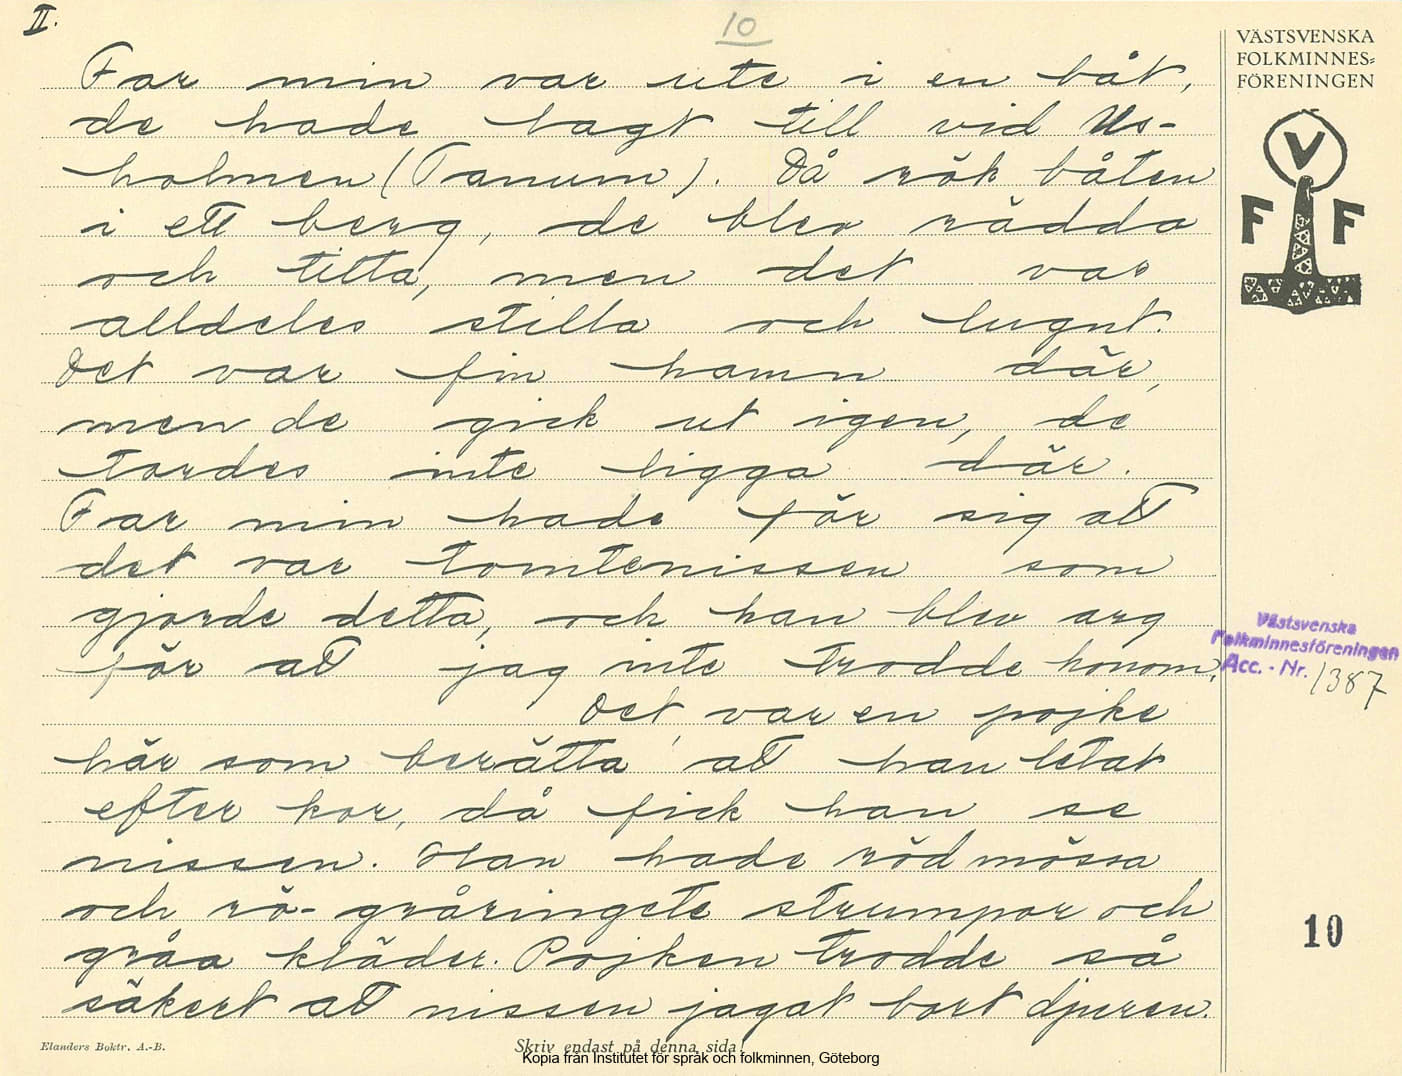 II.
10
Far min var ute i en båt,
de hade lagt till vid Us-
holmen (Tanum). Då rök båten
i ett berg, de blev rädda
och titta, men det var
alldeles stilla och lugnt.
Det var fin hamn där,
men de gick ut igen, de
tordes inte ligga där.
Far min hade för sig att
det var tomtenissen som
gjorde detta, och han blev arg
för att jag inte trodde honom.
Det var en pojke
här som berätta att han letat
efter kor, då fick han se
nissen. Han hade röd mössa
och rö-gråringete strumpor och
gråa kläder. Pojken trodde så
säkert att nissen jagat bort djuren.
Elanders Boktr. A.-B.
Skriv endast på denna sida!
Kopia från Institutet för språk och folkminnen, Göteborg
VÄSTSVENSKA
FOLKMINNES-
FÖRENINGEN
V
F F
Västsvenska
Folkminnesföreningen
Acc. - Nr. 1387
10